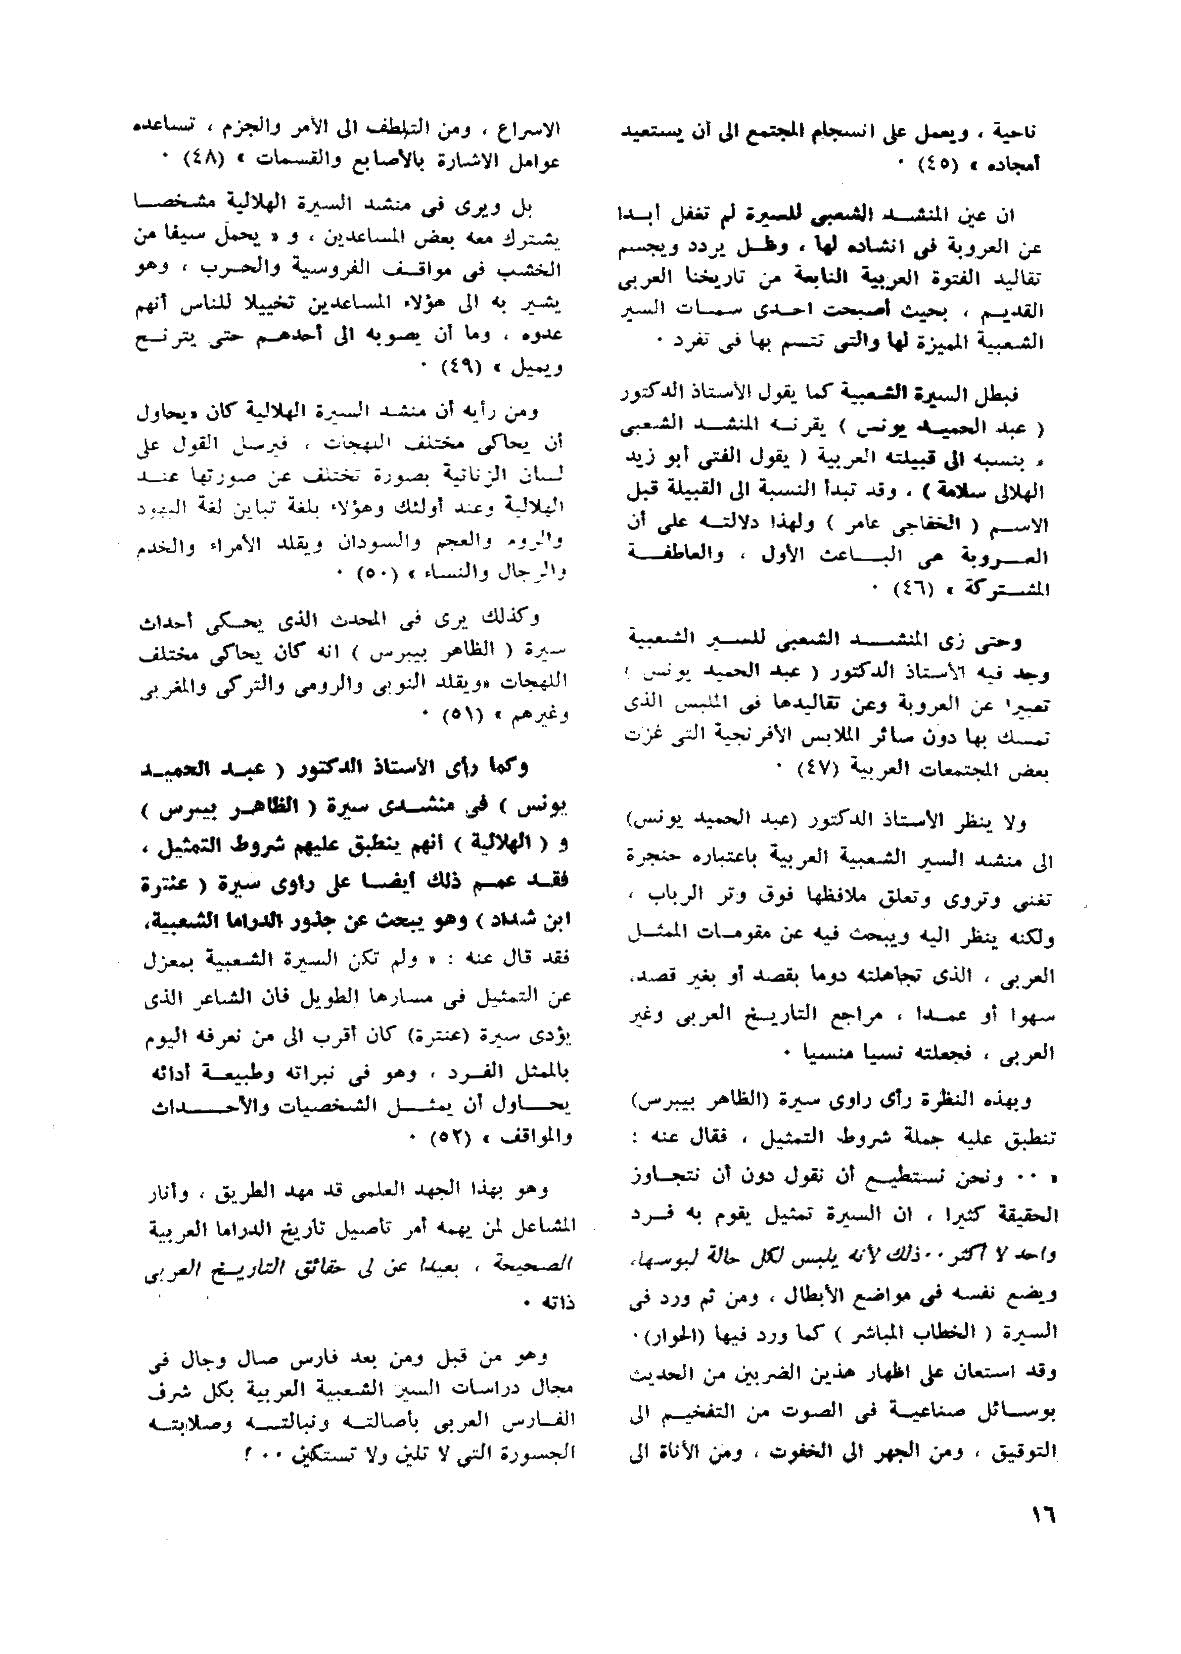 ناحية ، ويعمل على انسجام المجتمع الى أن يستعيد
أمجاده » (٤٥) ٠
ان عين المنشد الشعبى للسيرة لم تغفل أبدا
عن العروبة فى انشاده لها ، وظل يردد ويجسم
تقاليد الفتوة العربية النابعة من تاريخنا العربى
القديم ، بحيث أصبحت احدى سمات السير
الشعبية المميزة لها والتى تتسم بها فى تفرد ٠
فبطل السيرة الشعبية كما يقول الأستاذ الدكتور
( عبد الحميد يونس ) يقرنه المنشد الشعبى
« بنسبه الى قبيلته العربية ( يقول الفتى أبو زيد
الهلالى سلامة ) ، وقد تبدأ النسبة الى القبيلة قبل
الاسم ( الخفاجى عامر ) ولهذا دلالته على أن
العروبة هى الباعث الأول ، والعاطفة
المشتركة » (٤٦) ٠
وحتى زى المنشد الشعبى للسير الشعبية
وجد فيه الأستاذ الدكتور ( عبد الحميد يونس )
تعبيرا عن العروبة وعن تقاليدها فى الملبس الذى
تمسك بها دون سائر الملابس الأفرنجية التى غزت
بعض المجتمعات العربية (٤٧) ٠
ولا ينظر الأستاذ الدكتور (عبد الحميد يونس)
الى منشد السير الشعبية العربية باعتباره حنجرة
تغنى وتروى وتعلق ملافظها فوق وتر الرباب ،
ولكنه ينظر اليه ويبحث فيه عن مقومات الممثل
العربى ، الذى تجاهلته دوما بقصد أو بغير قصد،
سهوا أو عمدا ، مراجع التاريخ العربى وغير
العربى ، فجعلته نسيا منسيا ٠
وبهذه النظرة رأى راوى سيرة (الظاهر بيبرس)
تنطبق عليه جملة شروط التمثيل ، فقال عنه :
« ٠٠ ونحن نستطيع أن نقول دون أن نتجاوز
الحقيقة كثيرا ، ان السيرة تمثيل يقوم به فرد
واحد لا أكثر ٠٠ ذلك لأنه يلبس لكل حالة لبوسها،
ويضع نفسه فى مواضع الأبطال ، ومن ثم ورد فى
السيرة ( الخطاب المباشر ) كما ورد فيها (الحوار)٠
وقد استعان على اظهار هذين الضربين من الحديث
بوسائل صناعية فى الصوت من التفخيم الى
التوقيق ، ومن الجهر الى الخفوت ، ومن الأناة الى
الاسراع ، ومن التلطف الى الأمر والجزم ، تساعده
عوامل الاشارة بالأصابع والقسمات » (٤٨) ٠
بل ويرى فى منشد السيرة الهلالية مشخصا
يشترك معه بعض المساعدين ، و « يحمل سيفا من
الخشب فى مواقف الفروسية والحرب ، وهو
يشير به الى هؤلاء المساعدين تخييلا للناس أنهم
عدوه ، وما أن يصوبه الى أحدهم حتى يترنح
ويميل » (٤٩) ٠
ومن رأيه أن منشد السيرة الهلالية كان «يحاول
أن يحاكى مختلف اللهجات ، فيرسل القول على
لسان الزناتية بصورة تختلف عن صورتها عند
الهلالية وعند أولئك وهؤلاء بلغة تباين لغة اليهود
والروم والعجم والسودان ويقلد الأمراء والخدم
والرجال والنساء » (٥٠) ٠
وكذلك يرى فى المحدث الذى يحكى أحداث
سيرة ( الظاهر بيبرس ) انه كان يحاكى مختلف
اللهجات «ويقلد النوبى والرومى والتركى والمغربى
وغيرهم » (٥١) ٠
وكما رأى الأستاذ الدكتور ( عبد الحميد
يونس ) فى منشدى سيرة ( الظاهر بيبرس )
و ( الهلالية ) أنهم ينطبق عليهم شروط التمثيل ،
فقد عمم ذلك أيضا على راوى سيرة ( عنترة
ابن شداد ) وهو يبحث عن جذور الدراما الشعبية،
فقد قال عنه : « ولم تكن السيرة الشعبية بمعزل
عن التمثيل فى مسارها الطويل فان الشاعر الذى
يؤدى سيرة (عنترة) كان أقرب الى من نعرفه اليوم
بالممثل الفرد ، وهو فى نبراته وطبيعة أدائه
يحاول أن يمثل الشخصيات والأحداث
والمواقف » (٥٢) ٠
وهو بهذا الجهد العلمى قد مهد الطريق ، وأنار
المشاعل لمن يهمه أمر تأصيل تاريخ الدراما العربية
الصحيحة ، بعيدا عن لى حقائق التاريخ العربى
ذاته ٠
وهو من قبل ومن بعد فارس صال وجال فى
مجال دراسات السير الشعبية العربية بكل شرف
الفارس العربى بأصالته ونبالته وصلابته
الجسورة التى لا تلين ولا تستكين ٠٠ !
١٦